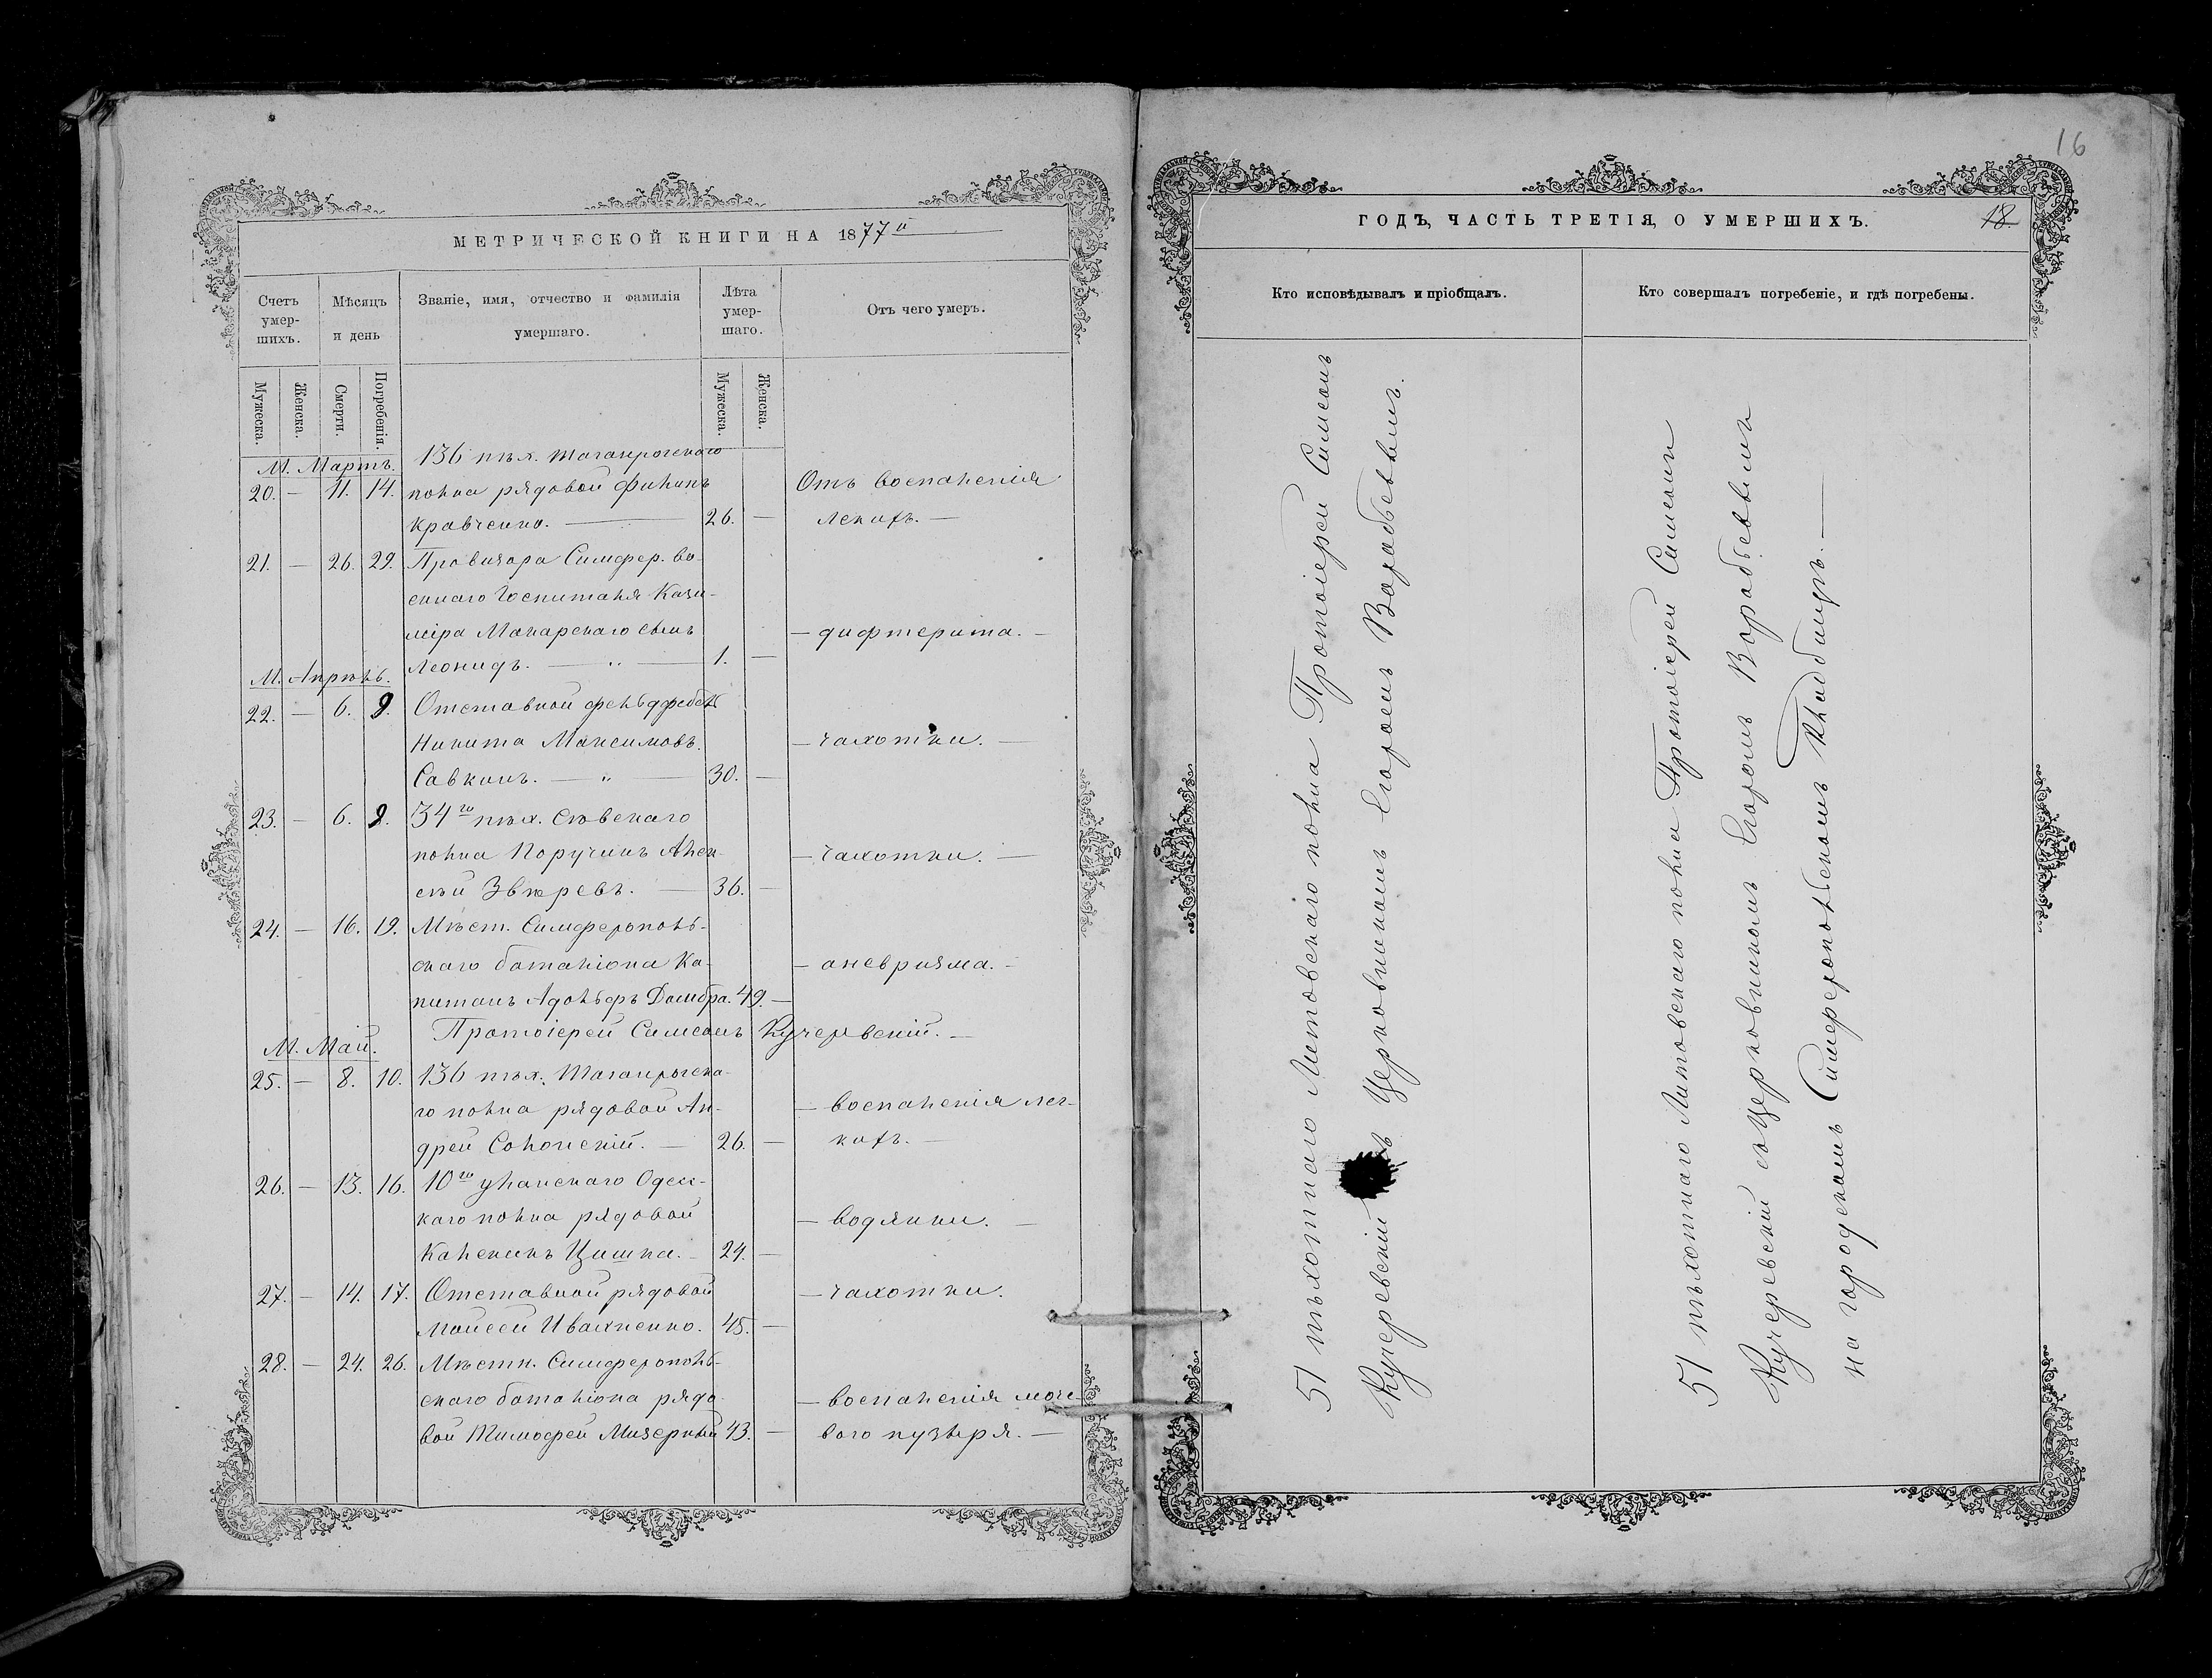 МЕТРИЧЕСКОЙ КНИГИ НА 1877й
Счетъ умер-шихъ.
Мѣсяцъ и день
Званіе, имя, отчество и фамилія умершаго.
Лѣта умер-шаго.
Отъ чего умеръ.
Мужеска.
Женска.
Смерти.
Погребенія.
Мужеска.
Женска.
М. Мартъ. 136 пѣх. Таганрогскаго
20. — 11. 14. полка рядовой Филипъ Отъ воспаленія
Кравченко. — 26. — легкихъ. —
21. — 26. 29. Провизора Симфер. во-
еннаго Госпиталя Кази-
міра Макарскаго сынъ — дифтерита. —
Леонидъ. — " — 1. —
М. Апрѣль.
22. — 6. 9. Отставной фельдфебель
Никита Максимовъ — чахотки. —
Савкинъ. — " — 30. —
23. — 6. 9. 34го пѣх. Сѣвскаго
полка Поручикъ Алек- — чахотки. —
сѣй Звѣревъ. — 36. —
24. — 16. 19. Мѣст. Симферополь-
скаго баталіона Ка- — аневризма. —
питанъ Адольфъ Домбра. 49. —
Протоіерей Симеонъ Кучеревскій. —
М. Май.
25. — 8. 10. 136 пѣх. Таганрогска-
го полка рядовой Ан- — воспаленія лег-
дрей Солонскій. — 26. — кихъ. —
26. — 13. 16. 10го уланскаго Одес-
каго полка рядовой — водянки. —
Каленикъ Цишка. — 24. —
27. — 14. 17. Отставной рядовой — чахотки.
Моисей Ивахненко. 45. —
28. — 24. 26. Мѣстн. Симферополь-
скаго баталіона рядо- — воспаленія моче-
вой Тимофей Мизерный 43. — вого пузыря. —
16
ГОДЪ, ЧАСТЬ ТРЕТІЯ, О УМЕРШИХЪ. 18.
Кто исповѣдывалъ и пріобщалъ.
Кто совершалъ погребеніе, и гдѣ погребены.
51 пѣхотнаго Литовскаго полка Протоіерей Симеонъ
Кучеревскій съ Церковникомъ Егоромъ Воробьевымъ.
51 пѣхотнаго Литовскаго полка Протоіерей Симеонъ
Кучеревскій съ Церковникомъ Егоромъ Воробьевымъ
на городскомъ Симферопольскомъ Кладбищѣ. —